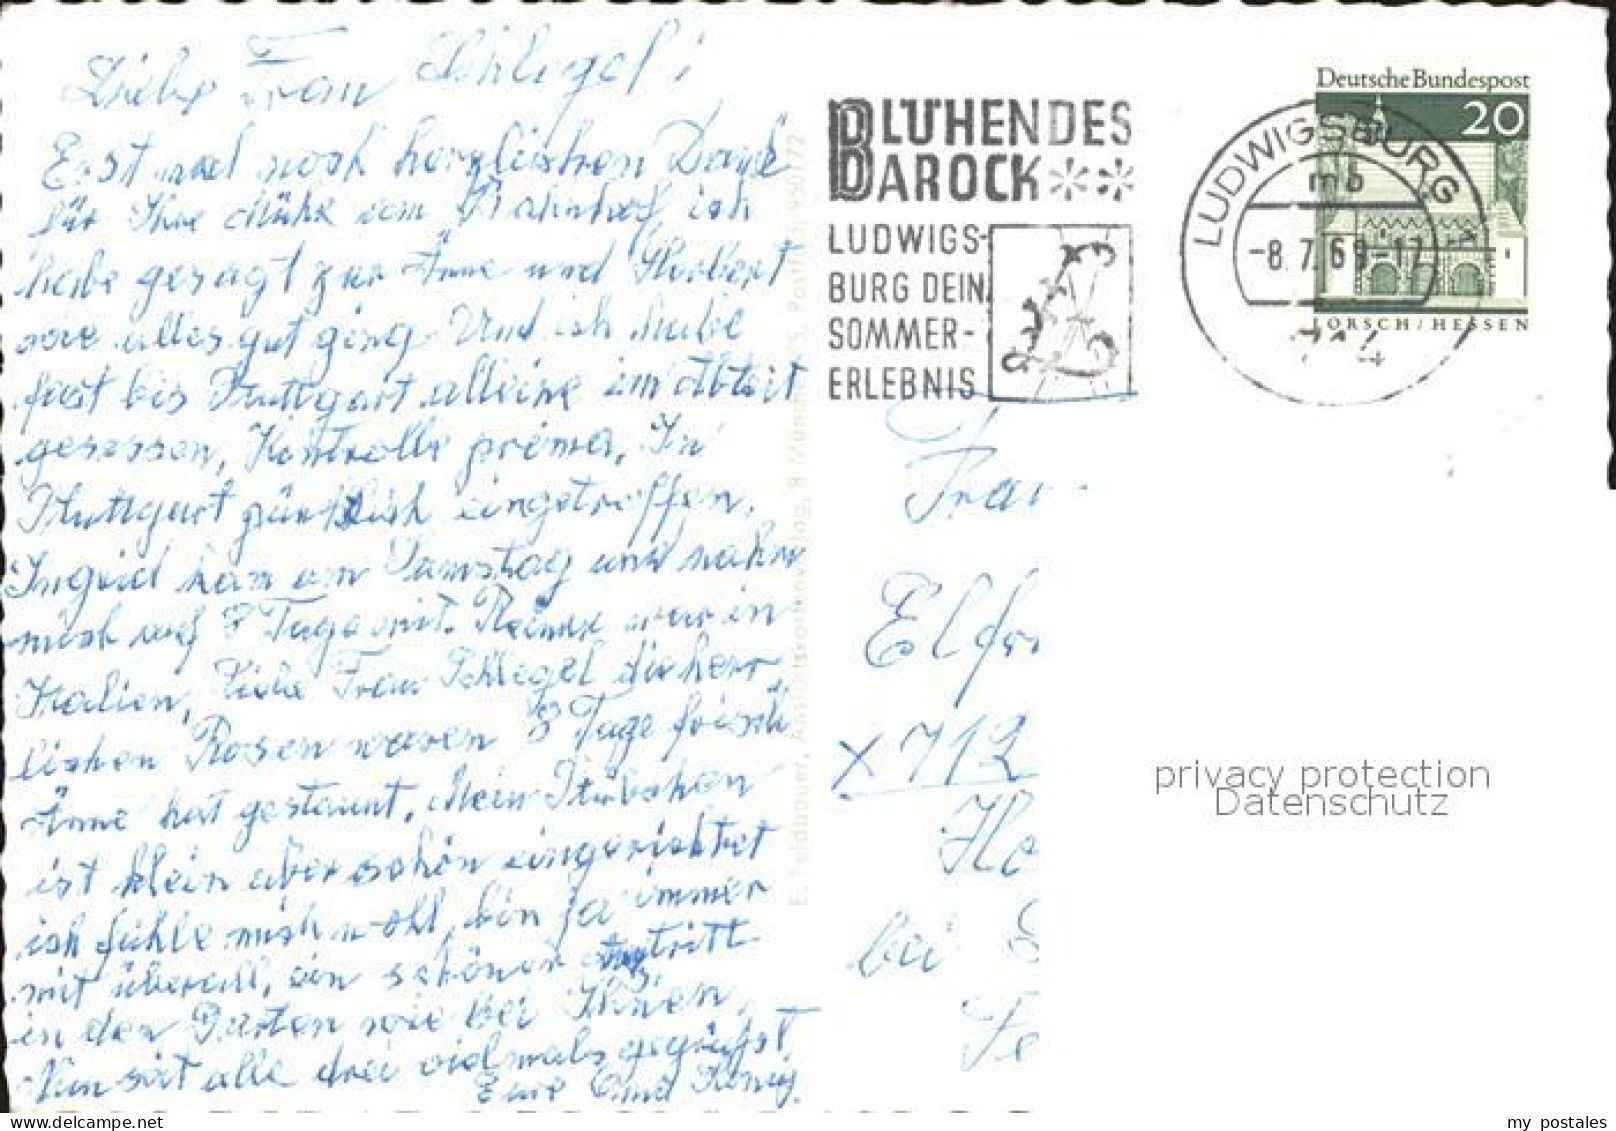 Liebe Frau Schlegel!
Erst mal noch herzlichen Dank
für Ihre Mühe vom Bahnhof, ich
habe gesagt zur Änne und Hubert
wie alles gut ging. Und ich habe
fast bis Stuttgart alleine im Abteil
gesessen, Kontrolle prima. In
Stuttgart pünktlich eingetroffen.
Ingrid kam am Samstag und nahm
mich auf 8 Tage mit. war in
Italien, Liebe Frau Schlegel die herr
lichen Rosen waren 8 Tage frisch
Änne hat gestaunt. Mein Stübchen
ist klein aber schön eingerichtet
ich fühle mich wohl, bin ja immer
mit überall, ein schöner Austritt
in den Garten wie bei Ihnen,
Nun seit alle drei vielmals gegrüßt
Eure Oma König.
E. Feldbauer, Ansichtskartenverlag, 8 München 5, Postfach 950172
BLÜHENDES
BAROCK
LUDWIGS-
BURG DEIN
SOMMER-
ERLEBNIS
LUDWIGSBURG
mb
-8.7.69-17
Deutsche Bundespost
20
LORSCH/HESSEN
Frau
Elfr
x 712
Ho
bei S
Fe
privacy protection
Datenschutz
my postales